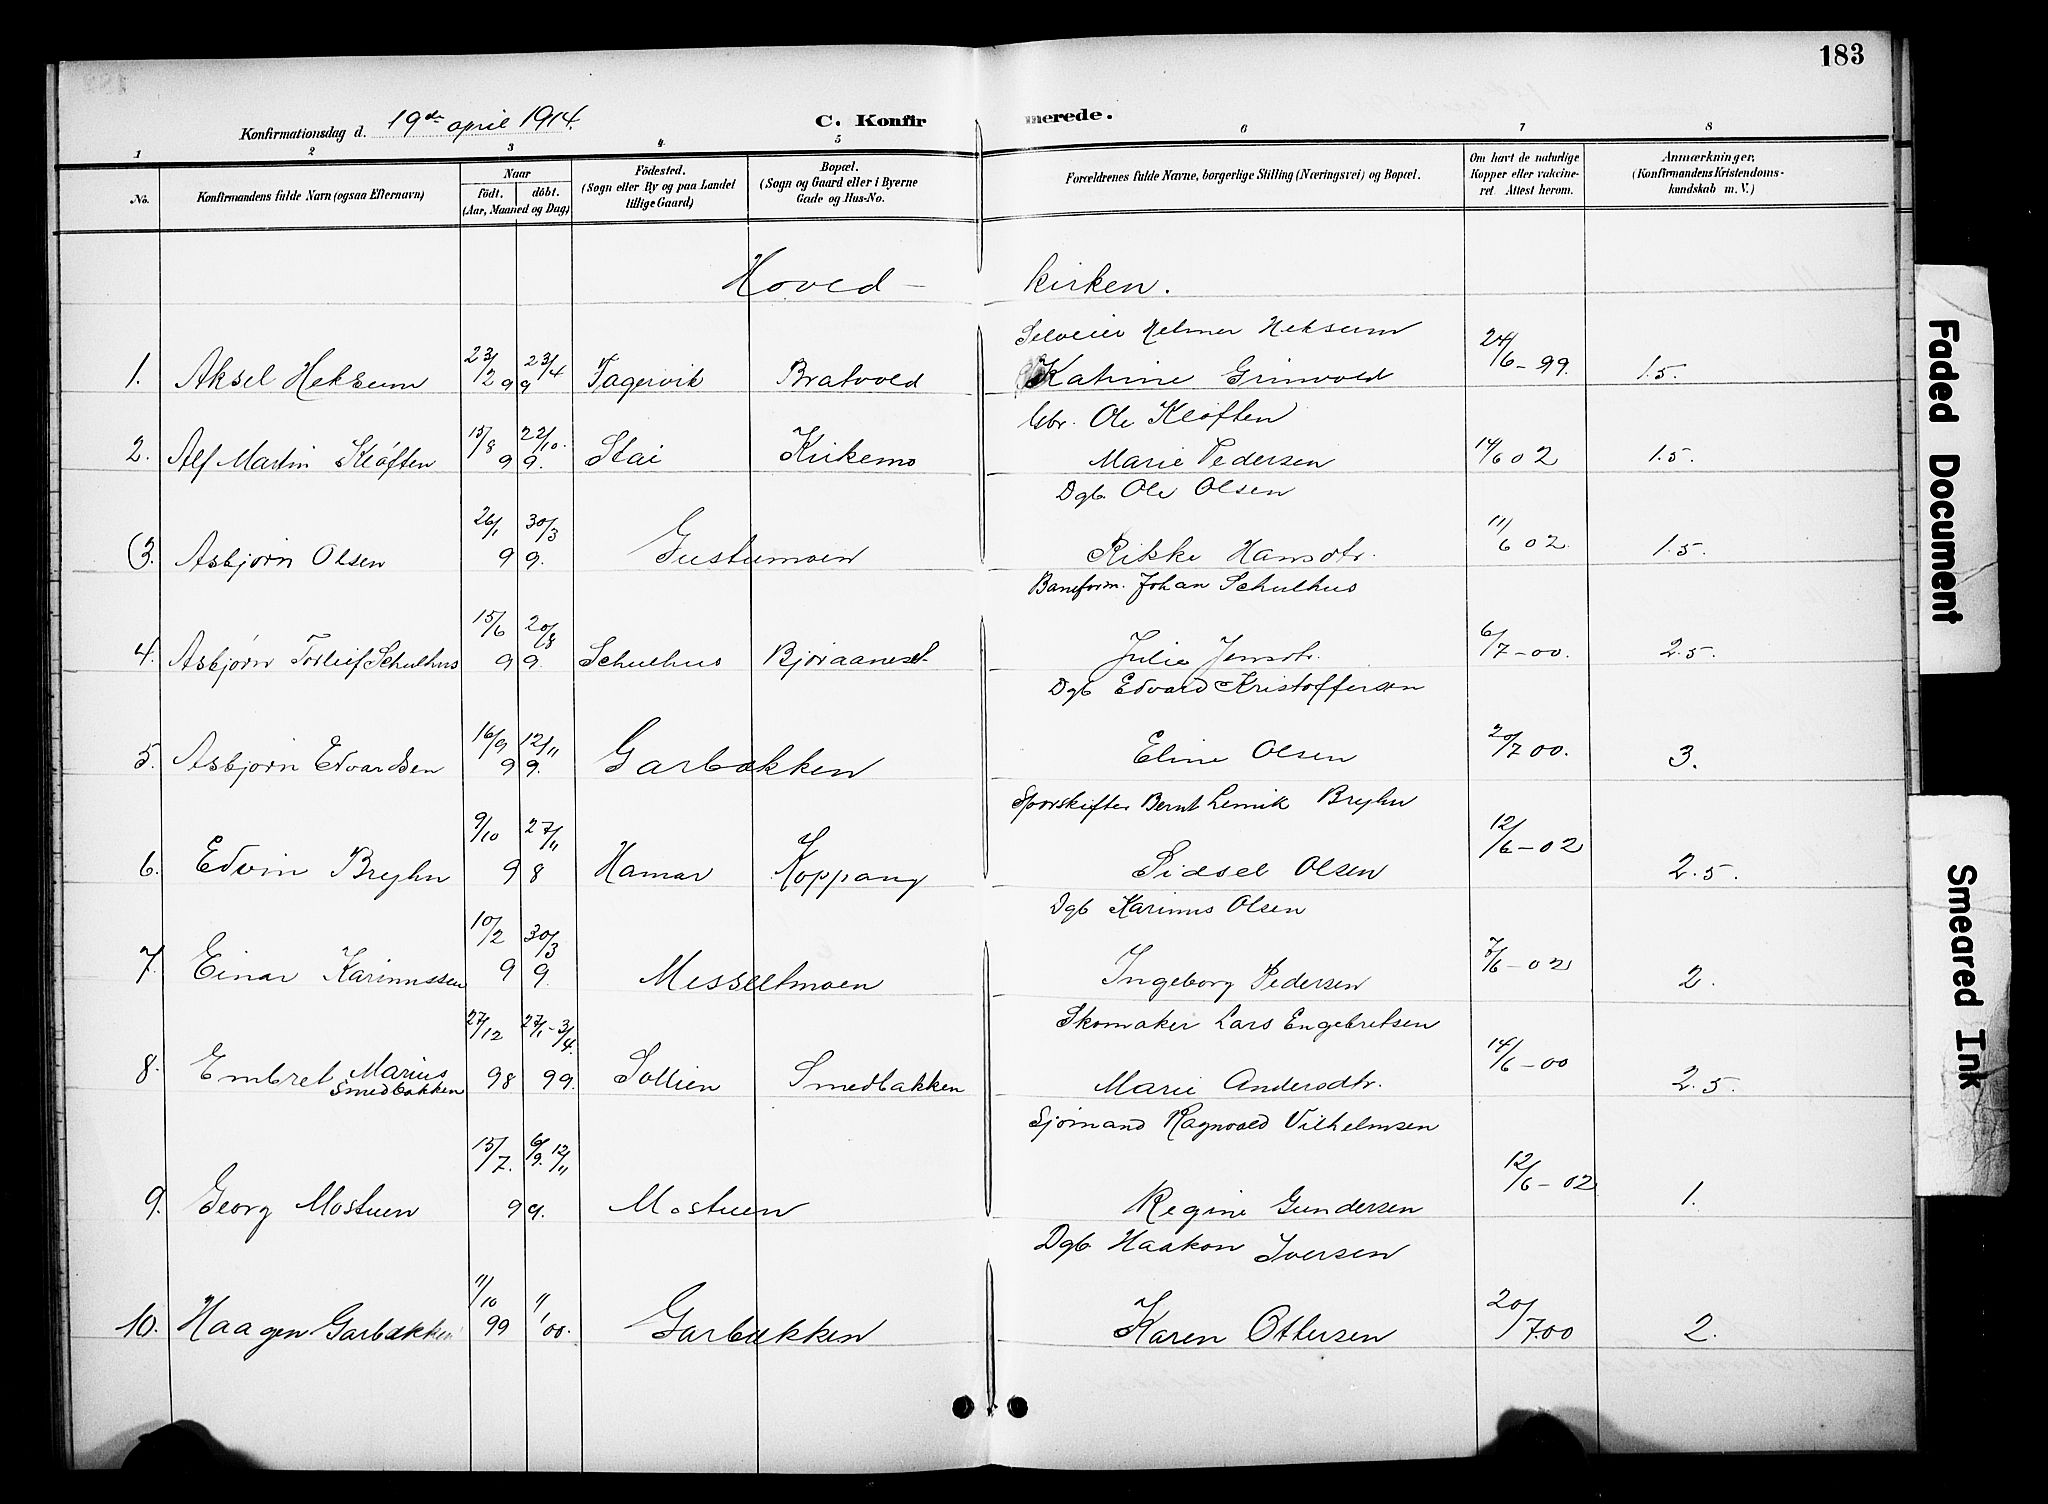 183
Konfirmationsdag d. 19de april 1914.
C. Konfirmerede.
1 2 3 4 5 6 7 8
No.
Konfirmandens fulde Navn (ogsaa Efternavn)
Naar
födt. döbt.
(Aar, Maaned og Dag)
Födested.
(Sogn eller By og paa Landet
tillige Gaard)
Bopæl.
(Sogn og Gaard eller i Byerne
Gade og Hus-No.
Forældrenes fulde Navne, borgerlige Stilling (Næringsvei) og Bopæl.
Om havt de naturlige
Kopper eller vakcine-
ret. Attest herom.
Anmærkninger.
(Konfirmandens Kristendoms-
kundskab m. V.)
Hoved- kirken.
Selveier Helmer Heksum
1. Aksel Heksum 23/2 99 23/4 Fagervik Bratvold Katrine Grinvold 24/6-99. 1.5.
Gbr. Ole Kløften
2. Alf Martin Kløften 15/8 99. 22/10. Stai Kirkemo Marie Pedersen 14/6 02 1.5.
Dgb. Ole Olsen
(3. Asbjørn Olsen 26/1 99. 30/3 Gustumoen Rikke Hansdtr. 11/6 02. 1.5.
Baneform. Johan Schulhus
4. Asbjørn Torleif Schulhus 15/6 99. 20/8 Schulhus Bjøraaneset Julie Jensdtr. 6/7-00. 2.5.
Dgb Edvard Kristoffersen
5. Asbjørn Edvardsen 16/9 99. 12/11 Garbakken Eline Olsen 20/7 00. 3.
Sporskifter Bernt Lemik Bryhn
6. Edvin Bryhn 9/10 98 27/11 Hamar Koppang Sidsel Olsen 12/6-02 2.5.
Dgb Karinus Olsen
7. Einar Karinussen 10/2 99. 30/3 Messeltmoen Ingeborg Pedersen 7/6-02 2.
Skomaker Lars Engebretsen
8. Embret Marius Smedbakken 27/12 98 27/1-3/4. 99. Sollien Smedbakken Marie Andersdtr. 14/6-00 2.5.
Sjømand Ragnvald Vilhelmsen
9. Georg Mostuen 15/7. 99. 6/9. 12/11 Mostuen Regine Gundersen 12/6-02. 1.
Dgb Haakon Iversen
10. Haagen Garbakken 11/10 99 1/1 00. Garbakken Karen Ottersen 20/7.00 2.
Faded Document
Smeared Ink